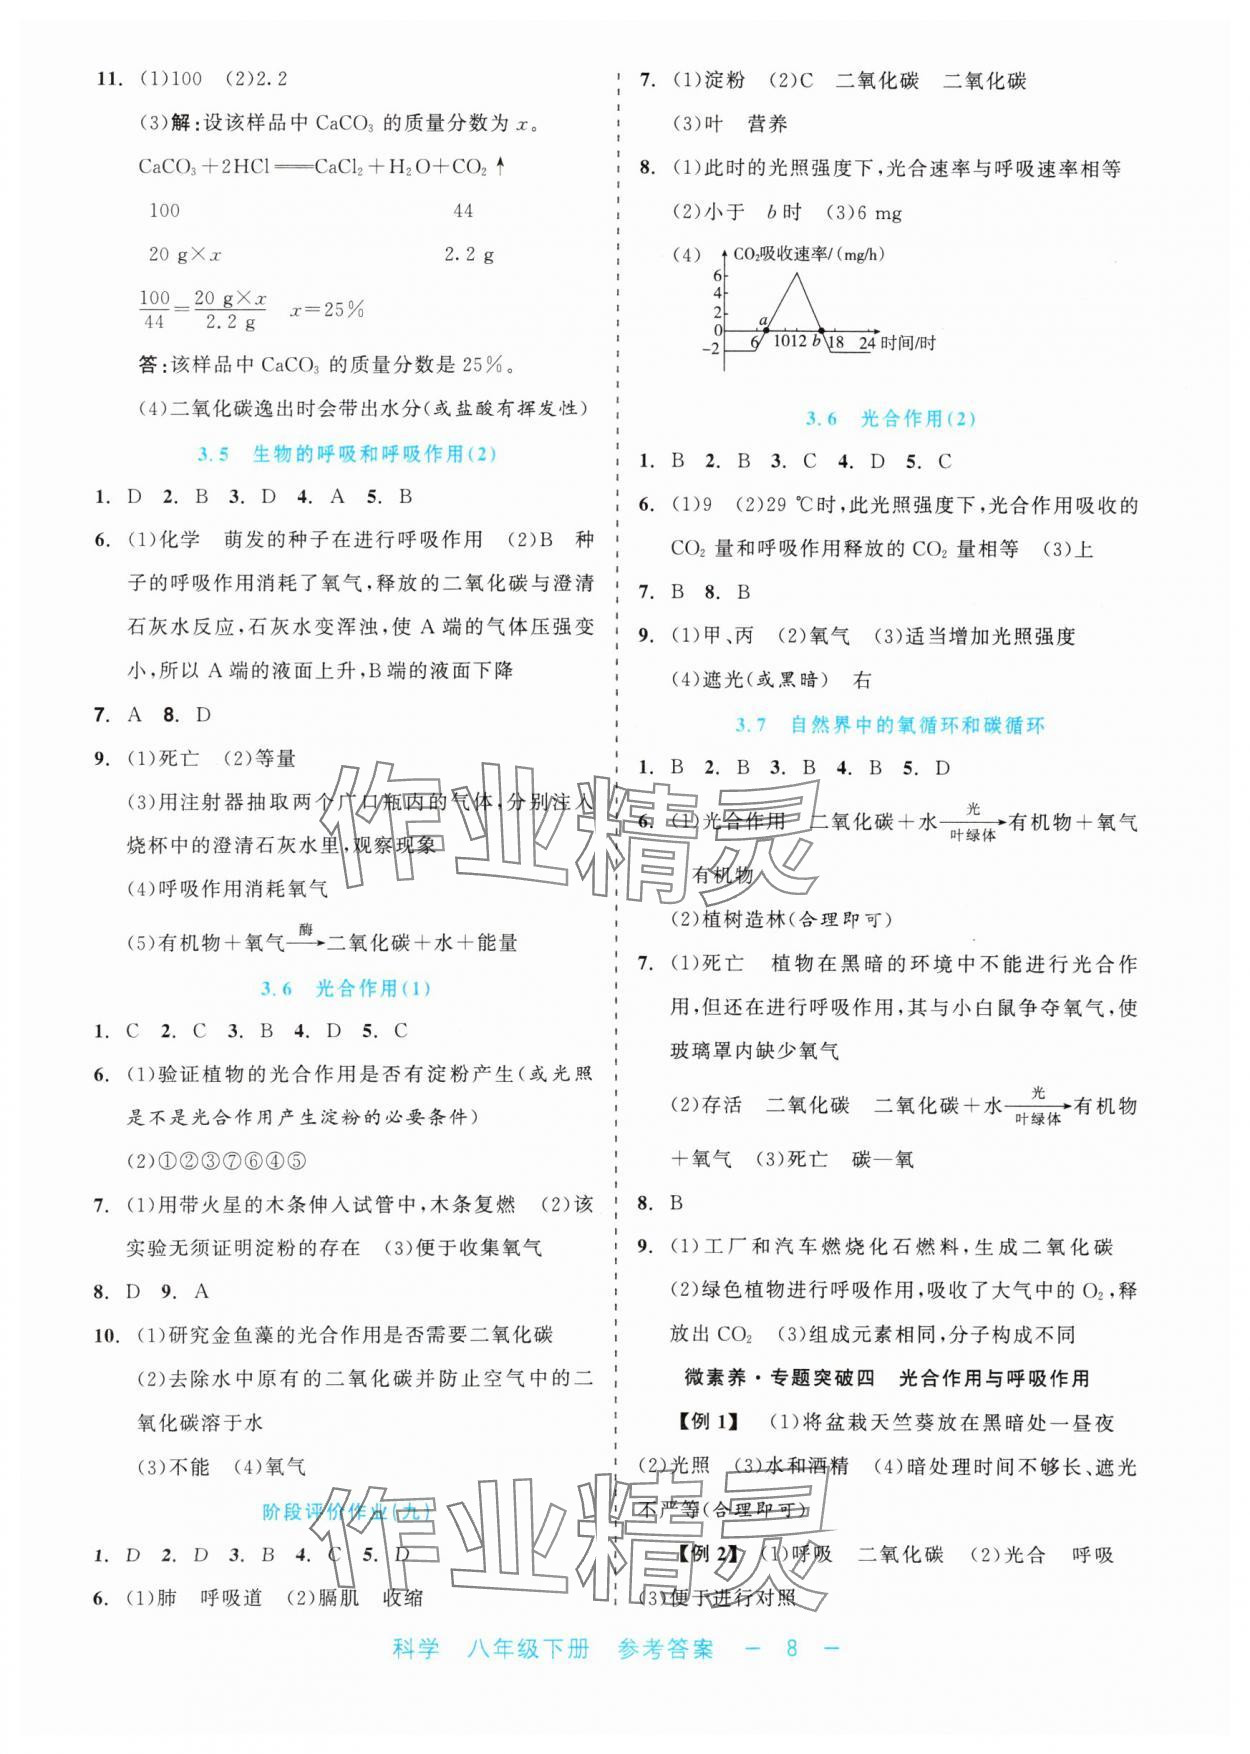 11. (1)100 (2)2.2
(3)解:设该样品中 CaCO₃ 的质量分数为 x。
CaCO₃+2HCl══CaCl₂+H₂O+CO₂↑
100 44
20 g×x 2.2 g
100/44=20 g×x/2.2 g x=25%
答:该样品中 CaCO₃ 的质量分数是 25%。
(4)二氧化碳逸出时会带出水分(或盐酸有挥发性)
3.5 生物的呼吸和呼吸作用(2)
1. D 2. B 3. D 4. A 5. B
6. (1)化学 萌发的种子在进行呼吸作用 (2)B 种
子的呼吸作用消耗了氧气,释放的二氧化碳与澄清
石灰水反应,石灰水变浑浊,使 A 端的气体压强变
小,所以 A 端的液面上升,B 端的液面下降
7. A 8. D
9. (1)死亡 (2)等量
(3)用注射器抽取两个广口瓶内的气体,分别注入
烧杯中的澄清石灰水里,观察现象
(4)呼吸作用消耗氧气
(5)有机物+氧气—酶→二氧化碳+水+能量
3.6 光合作用(1)
1. C 2. C 3. B 4. D 5. C
6. (1)验证植物的光合作用是否有淀粉产生(或光照
是不是光合作用产生淀粉的必要条件)
(2)①②③⑦⑥④⑤
7. (1)用带火星的木条伸入试管中,木条复燃 (2)该
实验无须证明淀粉的存在 (3)便于收集氧气
8. D 9. A
10. (1)研究金鱼藻的光合作用是否需要二氧化碳
(2)去除水中原有的二氧化碳并防止空气中的二
氧化碳溶于水
(3)不能 (4)氧气
阶段评价作业(九)
1. D 2. D 3. B 4. C 5. D
6. (1)肺 呼吸道 (2)膈肌 收缩
7. (1)淀粉 (2)C 二氧化碳 二氧化碳
(3)叶 营养
8. (1)此时的光照强度下,光合速率与呼吸速率相等
(2)小于 b 时 (3)6 mg
(4) CO₂吸收速率/(mg/h)
6
4
2
0
-2
a
6 1012 b 18 24 时间/时
3.6 光合作用(2)
1. B 2. B 3. C 4. D 5. C
6. (1)9 (2)29 ℃时,此光照强度下,光合作用吸收的
CO₂ 量和呼吸作用释放的 CO₂ 量相等 (3)上
7. B 8. B
9. (1)甲、丙 (2)氧气 (3)适当增加光照强度
(4)遮光(或黑暗) 右
3.7 自然界中的氧循环和碳循环
1. B 2. B 3. B 4. B 5. D
6. (1)光合作用 二氧化碳+水—光/叶绿体→有机物+氧气
有机物
(2)植树造林(合理即可)
7. (1)死亡 植物在黑暗的环境中不能进行光合作
用,但还在进行呼吸作用,其与小白鼠争夺氧气,使
玻璃罩内缺少氧气
(2)存活 二氧化碳 二氧化碳+水—光/叶绿体→有机物
+氧气 (3)死亡 碳—氧
8. B
9. (1)工厂和汽车燃烧化石燃料,生成二氧化碳
(2)绿色植物进行呼吸作用,吸收了大气中的 O₂,释
放出 CO₂ (3)组成元素相同,分子构成不同
微素养·专题突破四 光合作用与呼吸作用
【例 1】 (1)将盆栽天竺葵放在黑暗处一昼夜
(2)光照 (3)水和酒精 (4)暗处理时间不够长、遮光
不严等(合理即可)
【例 2】 (1)呼吸 二氧化碳 (2)光合 呼吸
(3)便于进行对照
作业精灵
作业精灵
科学 八年级下册 参考答案 — 8 —